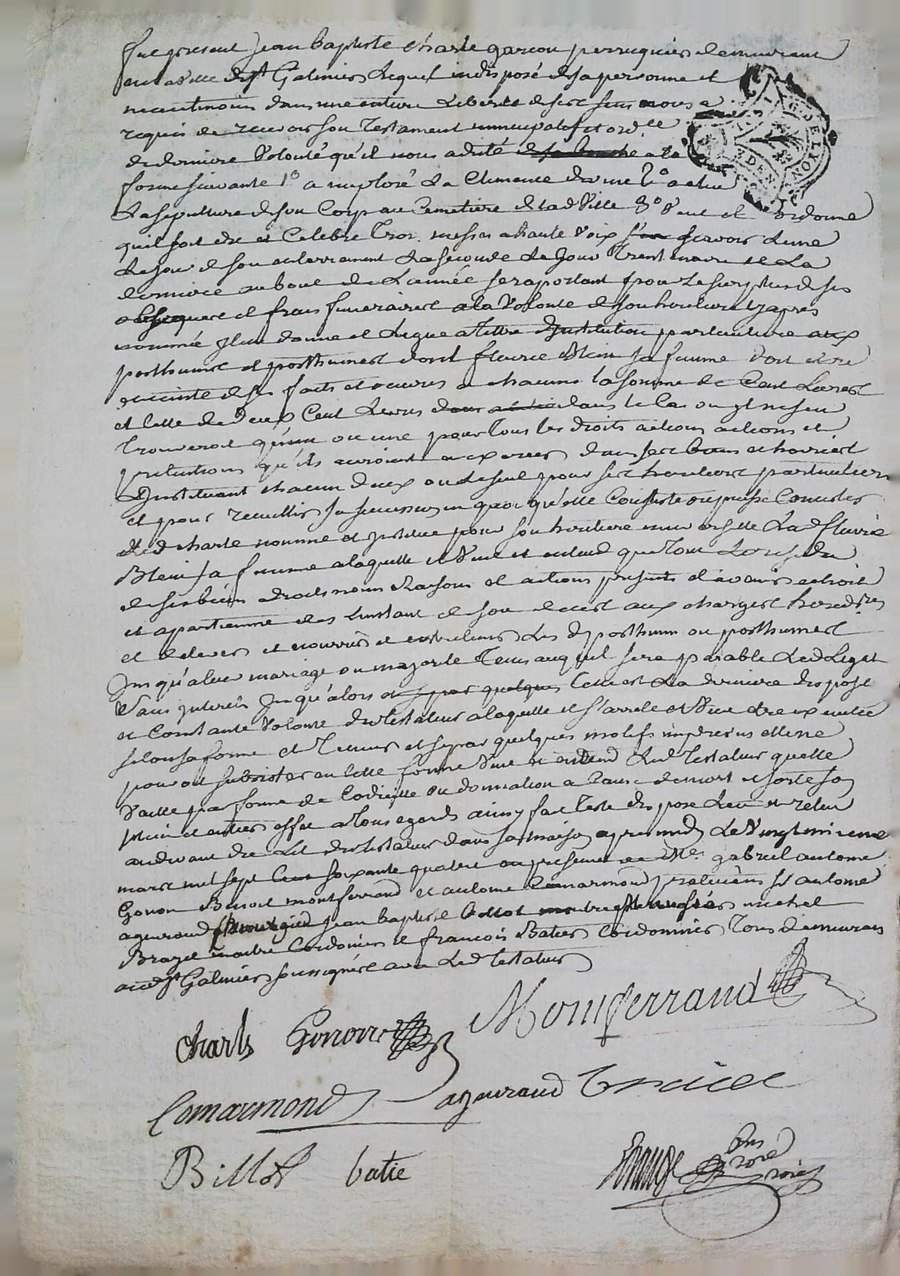 fut present Jean baptiste charle garcon perruquier demeurant
en la ville de st Galmier lequel indisposé de sa personne et
neantmoins dans une entiere Liberté de ses sens nous a
requis de recevoir son Testament nuncupatif et ord.re
de derniere Volonté qu'il nous a dicté a la
forme suivante 1o a imploré La Clemence divine 2o a elue
La sepulture de son Corps au Cemetiere de lad Ville 3o Veut et ordonne
quil soit dit et Celebré Trois messes a haute Voix scavoir Lune
Le jour de son enterrement La seconde Le jour Trentenaire et La
derniere au bout de L'année se raportant pour Le surplus de ses
obseques et frais funeraires a la Volonté de son heritiere cy apres
nommée plus donne et Legue a Titre d'Institution particuliere aux
posthume et posthumes dont fleurie Blein sa femme doit etre
enceinte de ses faits et oeuvres a chacuns la somme de Cent Livres
et Celle de deux Cent Livres dans le Cas ou il ne sen
trouveroit qu'un ou une pour Tous les droits actions et
pretentions qu'ils auroient a exercer dans ses biens et hoiries
Instituant chacun d'eux ou Le seul pour ses heritiers particuliers
et pour recueillir sa succession en quoy qu'elle Consiste ou puisse Consister
Led charle nomme et institue pour son heritiere universelle Lad fleurie
Blein sa femme a laquelle il Veut et entend que Tout Le residu
de ses biens droits noms Raisons et actions presents et avenir echoit
et apartienne des L'instant de son deces aux charges hereditaires
et d'elever et nourrir et entretenir Les d posthume ou posthumes
Jusqu'a leur mariage ou majorité Tems auquel sera payable Led Legat
Sans interets Jusqu'alors et Telle est La derniere disposé
et Constante Volonté du Testateur a laquelle il s'arrete et Veut etre executée
selon sa forme et Teneur et si par quelques motifs imprevus elle ne
pouvoit subsister en Cette forme Veut et entend Led Testateur quelle
Vaille par forme de Codicille ou donnation a Cause de mort et sorte son
plein et entier effet a Tous egards ainsy fait Testé disposé Leu et releu
au devant du Lit du Testateur dans sa maison apres midy Le Vingt
mars mil sept Cent soixante quatre en presence de Mes gabriel antoine
Gonon Benoit montferrand et antoine Comarmond praticiens sr antoine
agueraud Jean baptiste maitre michel
maitre Cordonier et francois Batier Cordonnier Tous demeurans
aud st Galmier soussignés avec Led Testateur
charle Gonon Montferrand
Comarmond agueraud
Billot batie